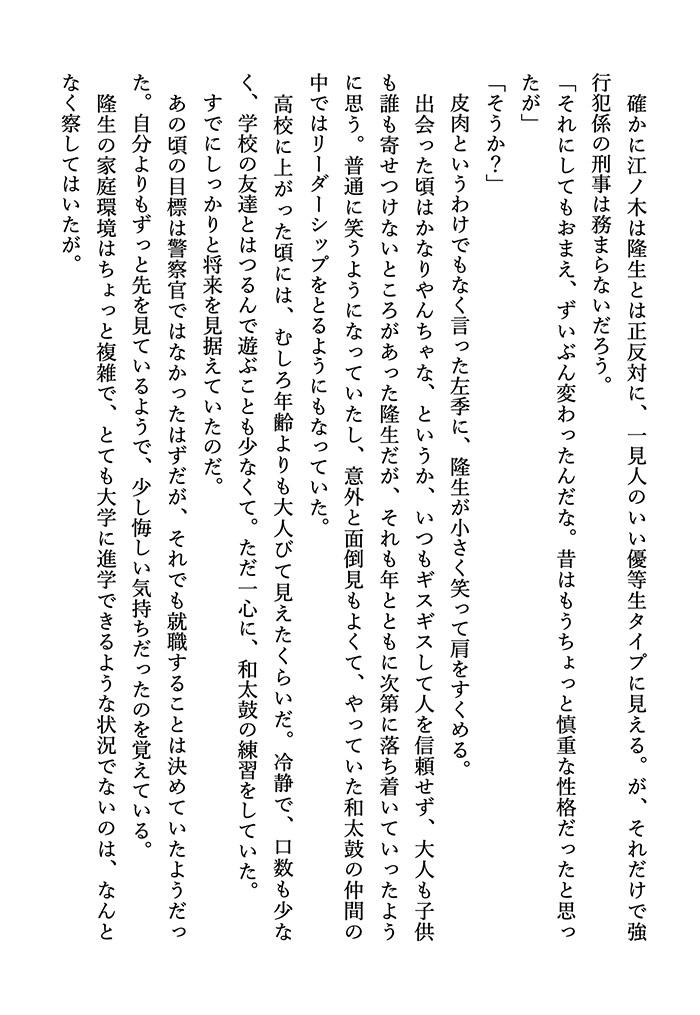 確かに江ノ木は隆生とは正反対に、一見人のいい優等生タイプに見える。が、それだけで強
行犯係の刑事は務まらないだろう。
「それにしてもおまえ、ずいぶん変わったんだな。昔はもうちょっと慎重な性格だったと思っ
たが」
「そうか？」
　皮肉というわけでもなく言った左季に、隆生が小さく笑って肩をすくめる。
　出会った頃はかなりやんちゃな、というか、いつもギスギスして人を信頼せず、大人も子供
も誰も寄せつけないところがあった隆生だが、それも年とともに次第に落ち着いていったよう
に思う。普通に笑うようになっていたし、意外と面倒見もよくて、やっていた和太鼓の仲間の
中ではリーダーシップをとるようにもなっていた。
　高校に上がった頃には、むしろ年齢よりも大人びて見えたくらいだ。冷静で、口数も少な
く、学校の友達とはつるんで遊ぶことも少なくて。ただ一心に、和太鼓の練習をしていた。
　すでにしっかりと将来を見据えていたのだ。
　あの頃の目標は警察官ではなかったはずだが、それでも就職することは決めていたようだっ
た。自分よりもずっと先を見ているようで、少し悔しい気持ちだったのを覚えている。
　隆生の家庭環境はちょっと複雑で、とても大学に進学できるような状況でないのは、なんと
なく察してはいたが。